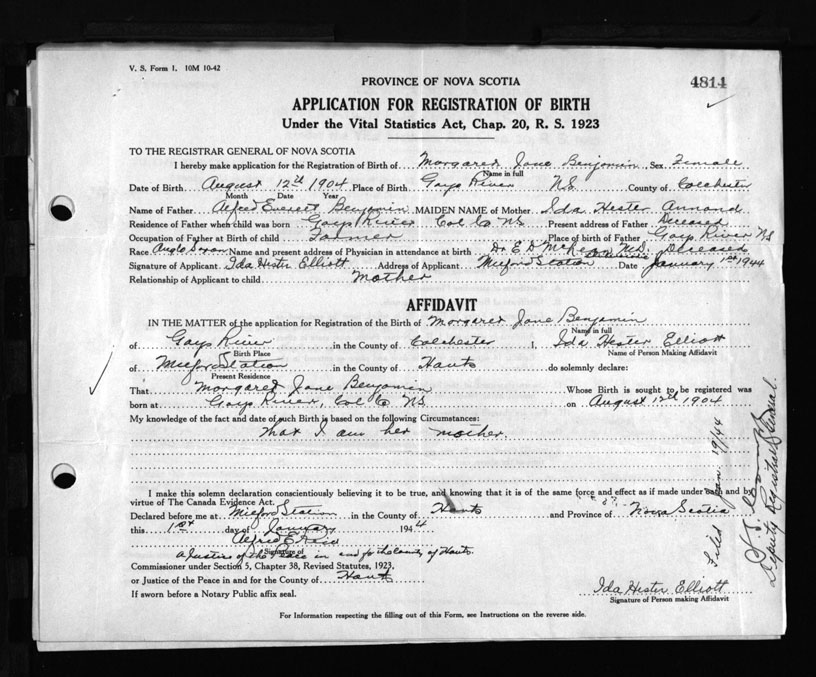 V. S. Form 1. 10M 10-42
PROVINCE OF NOVA SCOTIA
4814
APPLICATION FOR REGISTRATION OF BIRTH
Under the Vital Statistics Act, Chap. 20, R. S. 1923
TO THE REGISTRAR GENERAL OF NOVA SCOTIA
I hereby make application for the Registration of Birth of Margaret Jane Benjamin Sex Female
Name in full
Date of Birth August 12th 1904 Place of Birth Gays River N.S. County of Colchester
Month Date Year
Name of Father Alfred Everett Benjamin MAIDEN NAME of Mother Ida Hester Annand
Residence of Father when child was born Gays River Col Co N.S. Present address of Father Deceased
Occupation of Father at Birth of child Farmer Place of birth of Father Gays River N.S
Race Anglo Saxon Name and present address of Physician in attendance at birth Dr. E D McLean N.S. Deceased
Signature of Applicant Ida Hester Elliott Address of Applicant Milford Station Date January 1st 1944
Relationship of Applicant to child Mother
AFFIDAVIT
IN THE MATTER of the application for Registration of the Birth of Margaret Jane Benjamin
Name in full
of Gays River in the County of Colchester I, Ida Hester Elliott
Birth Place Name of Person Making Affidavit
of Milford Station in the County of Hants do solemnly declare:
Present Residence
That Margaret Jane Benjamin Whose Birth is sought to be registered was
born at Gays River, Col Co N.S. on August 12th 1904
My knowledge of the fact and date of such Birth is based on the following Circumstances:
that I am her mother.
I make this solemn declaration conscientiously believing it to be true, and knowing that it is of the same force and effect as if made under oath and by
virtue of The Canada Evidence Act.
Declared before me at Milford Station in the County of Hants and Province of Nova Scotia
this 1st day of January 1944
Alfred E Reid
Signature of
a Justice of the Peace in and for the county of Hants.
Commissioner under Section 5, Chapter 38, Revised Statutes, 1923,
or Justice of the Peace in and for the County of Hants
If sworn before a Notary Public affix seal.
Ida Hester Elliott
Signature of Person making Affidavit
For Information respecting the filling out of this Form, see Instructions on the reverse side.
Filed Jan 19/44
Deputy Registrar General.